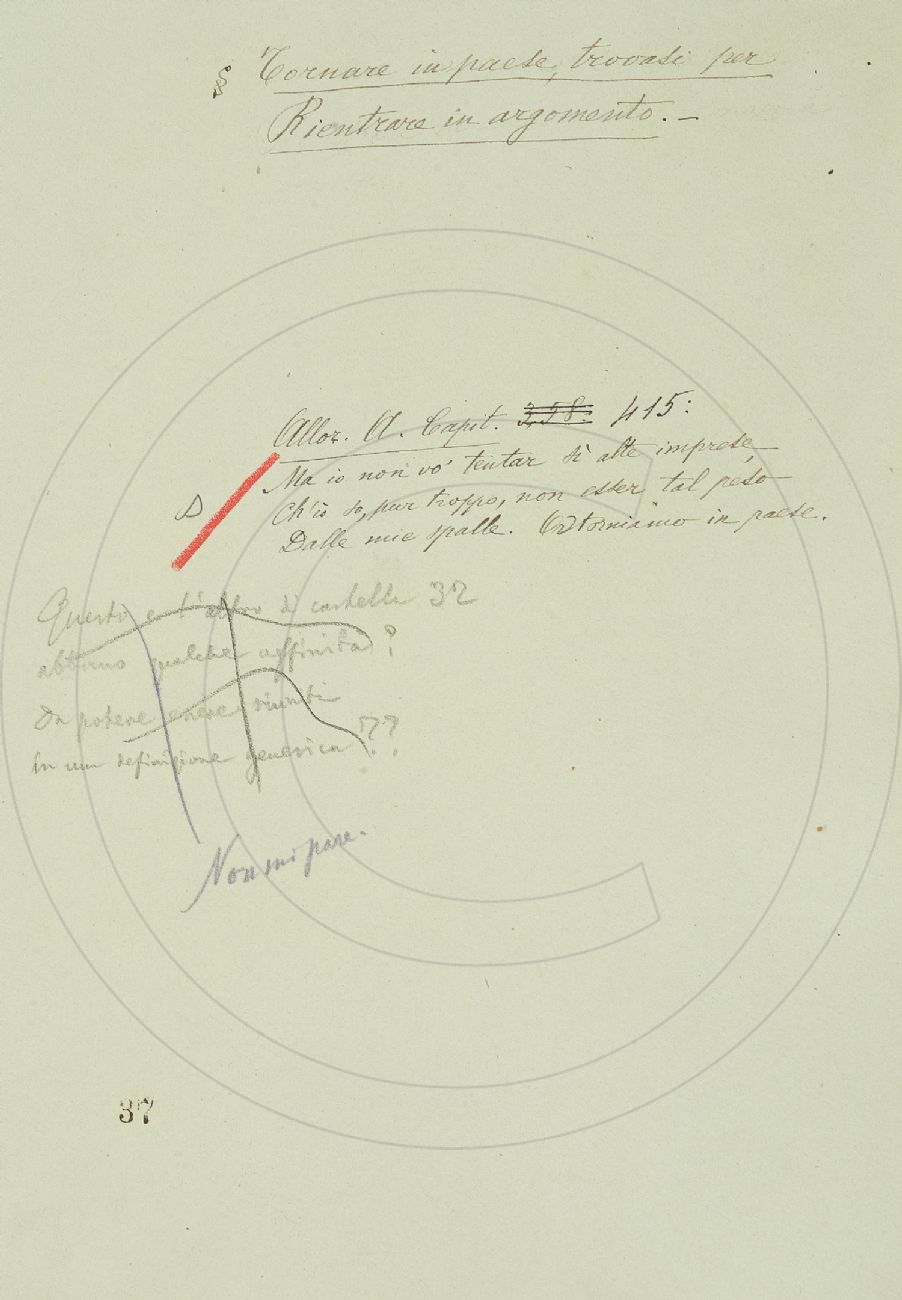 § Tornare in paese, trovasi per
Rientrare in argomento. –
Allor. A. Capit. 358. 415:
Ma io non vo' tentar sì alte imprese,
Ch'io so, pur troppo, non esser tal peso
Dalle mie spalle. Or torniamo in paese.
Questo e l'altro di cartella 32
abbiano qualche affinità?
Da potere essere riuniti
in una definizione generica ??
Non mi pare.
37